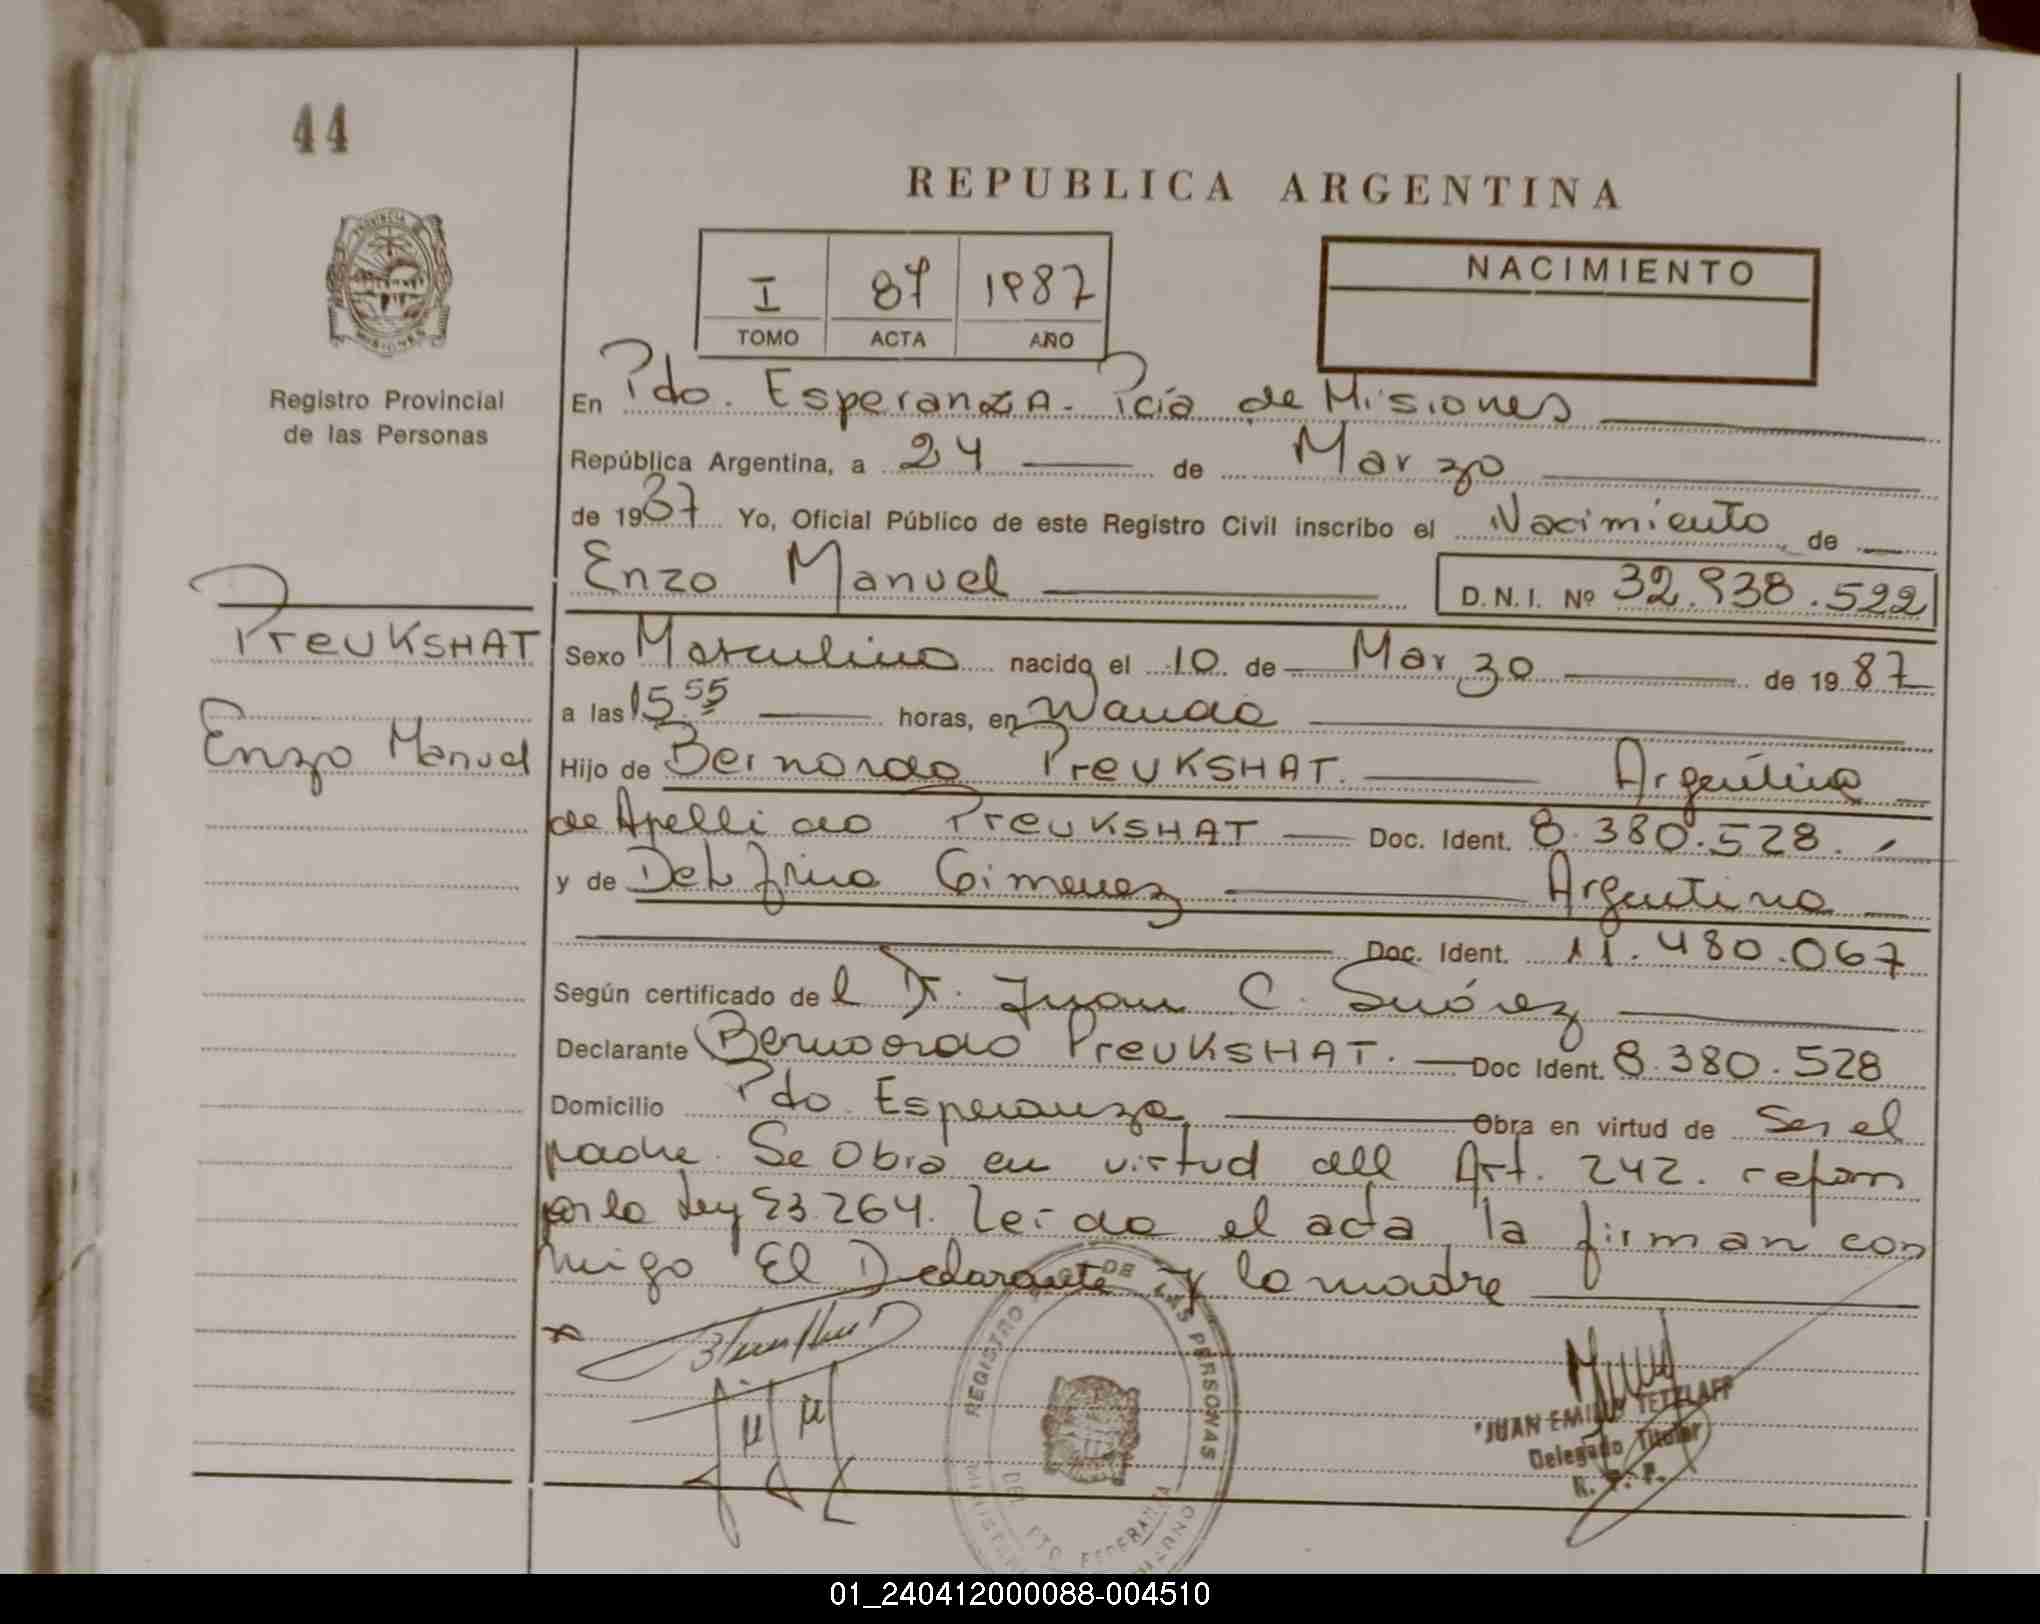 44
REPUBLICA ARGENTINA
PROVINCIA
MISIONES
Registro Provincial
de las Personas
I 87 1987
TOMO ACTA AÑO
NACIMIENTO
En Pdo. Esperanza - Pcia de Misiones
República Argentina, a 24 de Marzo
de 1987 Yo, Oficial Público de este Registro Civil inscribo el Nacimiento de
Enzo Manuel D.N.I. Nº 32.938.522
PreuKSHAT
Enzo Manuel
Sexo Masculino nacido el 10 de Marzo de 1987
a las 15.55 horas, en Wanda
Hijo de Bernardo PreuKSHAT. Argentino
de Apellido PreuKSHAT Doc. Ident. 8.380.528.
y de Delfina Gimenez Argentina
Doc. Ident. 11.480.067
Según certificado del Dr. Juan C. Suárez
Declarante Bernardo PreuKSHAT. Doc Ident. 8.380.528
Domicilio Pdo. Esperanza Obra en virtud de Ser el
padre. Se Obra en virtud del Art. 242. reform
por la Ley 23.264. Leida el acta, la firman con
migo El Declarante y la madre
REGISTRO DE LAS PERSONAS
PTO. ESPERANZA
JUAN EMILIO TETZLAFF
Delegado Titular
R. P. P.
01_240412000088-004510